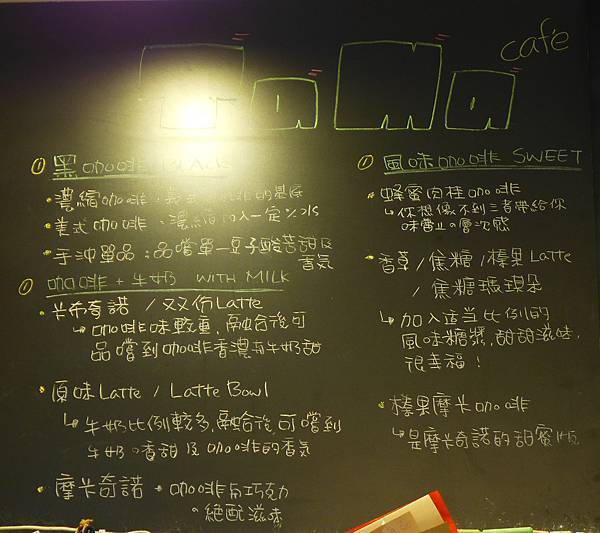 café
① 黑咖啡 BLACK
•濃縮咖啡：義式咖啡的基底
•美式咖啡：濃縮加入一定%水
•手沖單品：品嚐單一豆子酸苦甜及
香氣
① 咖啡+牛奶 WITH MILK
•卡布奇諾 / 双份Latte
↳咖啡味較重，融合後可
品嚐到咖啡香濃與牛奶甜
•原味Latte / Latte Bowl
↳牛奶比例較多，融合後，可嚐到
牛奶の香甜及咖啡的香氣
•摩卡奇諾 • 咖啡與巧克力
の絕配滋味
① 風味咖啡 SWEET
•蜂蜜肉桂咖啡
↳你想像不到三者帶給你
味蕾上の層次感
•香草 / 焦糖 / 榛果Latte
/ 焦糖瑪琪朵
↳加入適當比例的
風味糖漿，甜甜滋味，
很幸福！
•榛果摩卡咖啡
↳是摩卡奇諾的甜蜜版